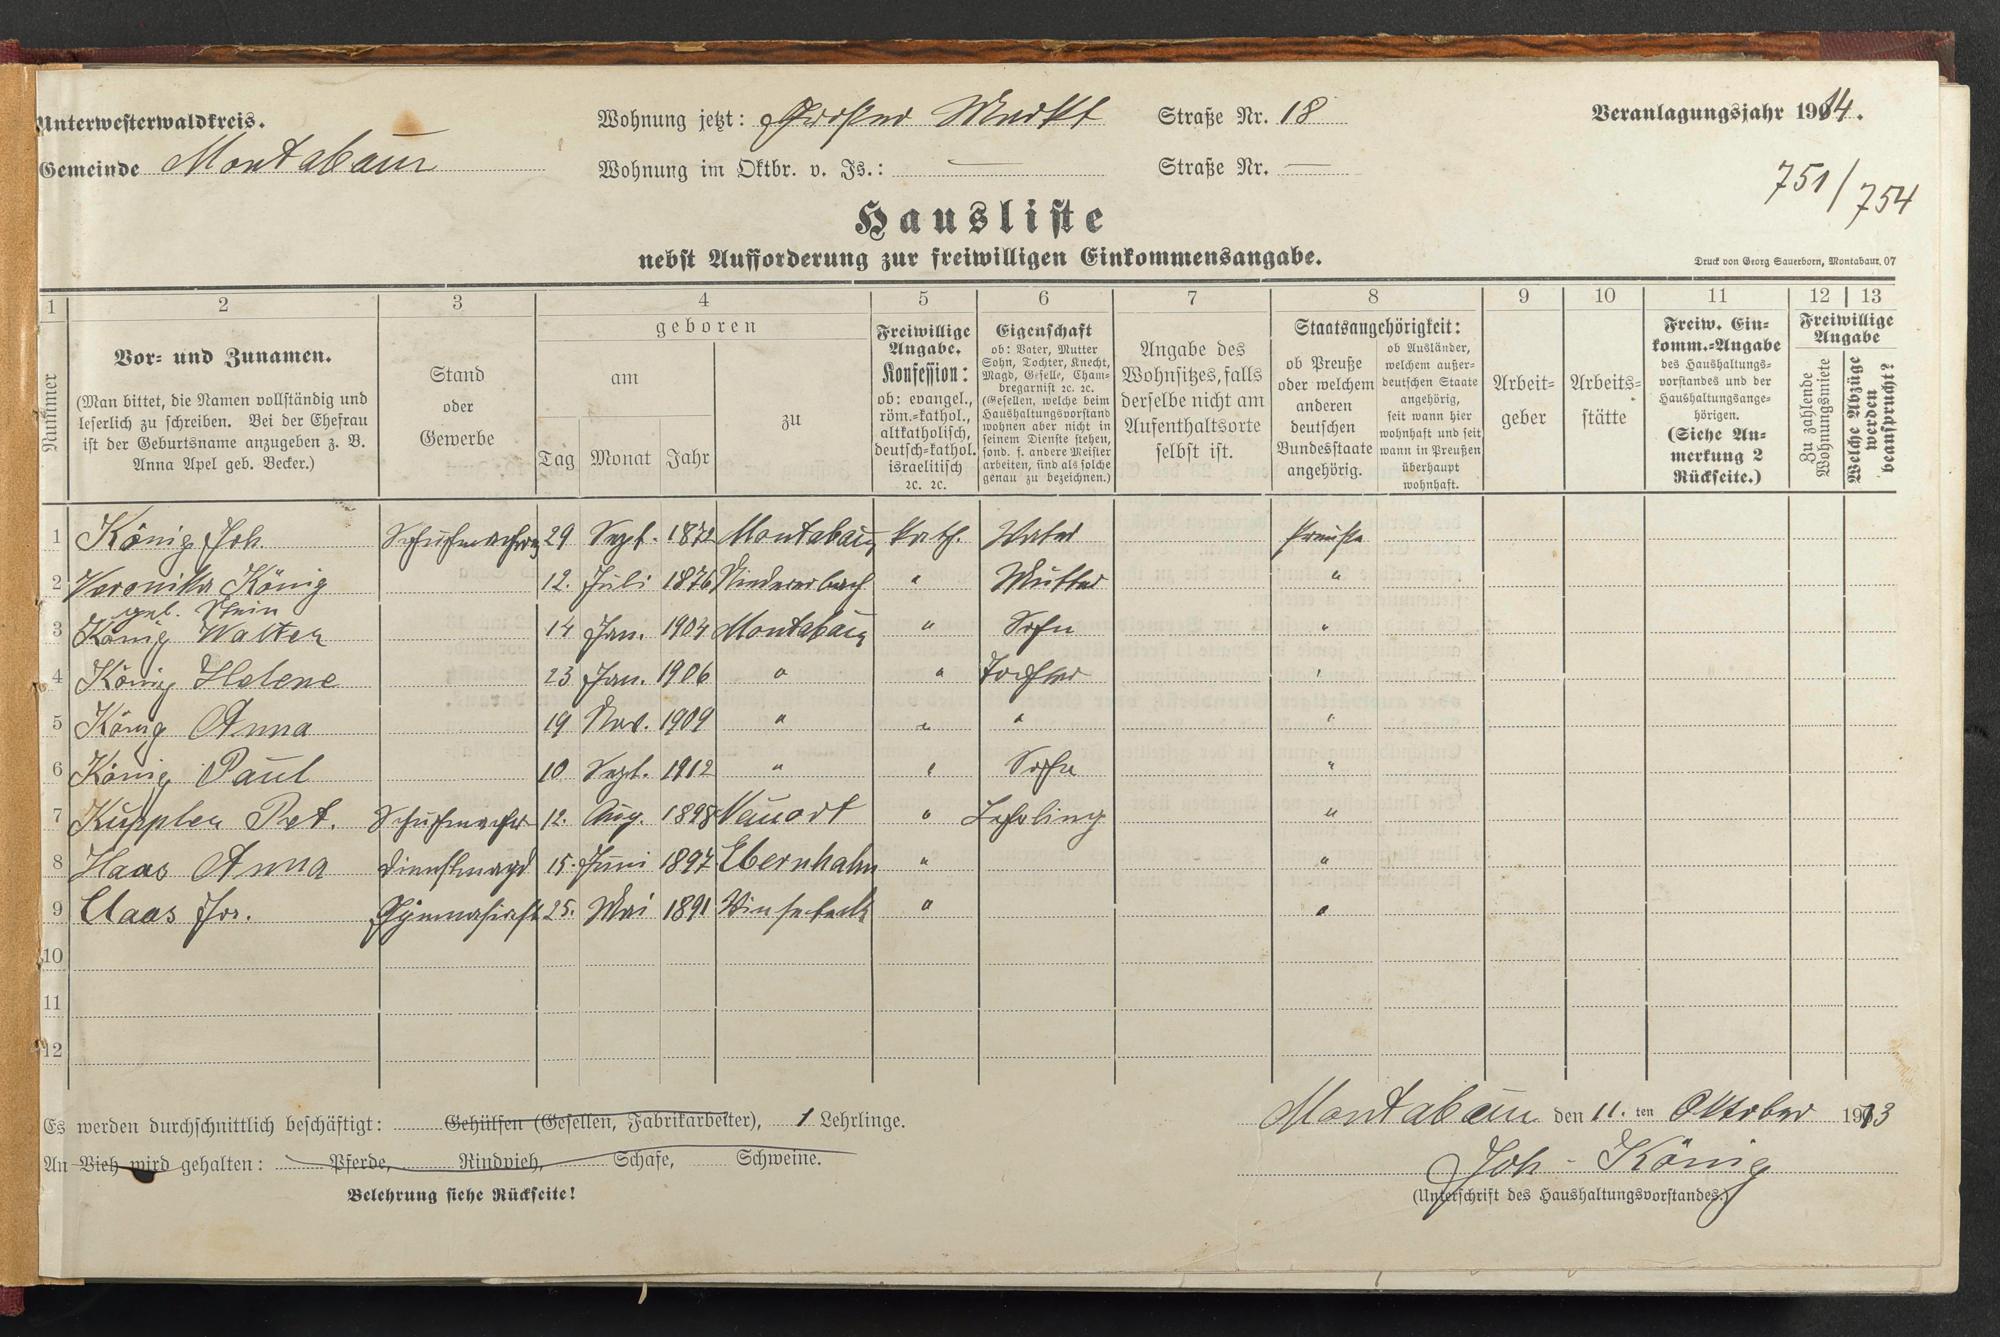 Unterwesterwaldkreis.
Gemeinde Montabaur
Wohnung jetzt: Großer Markt Straße Nr. 18
Wohnung im Oktbr. v. Js.: — Straße Nr. —
Veranlagungsjahr 1914.
751/754
Hausliste
nebst Aufforderung zur freiwilligen Einkommensangabe.
Druck von Georg Sauerborn, Montabaur. 07
1 2 3 4 5 6 7 8 9 10 11 12 13
Nummer
Vor- und Zunamen.
(Man bittet, die Namen vollständig und
leserlich zu schreiben. Bei der Ehefrau
ist der Geburtsname anzugeben z. B.
Anna Apel geb. Becker.)
Stand
oder
Gewerbe
geboren
am
Tag Monat Jahr
zu
Freiwillige
Angabe.
Konfession:
ob: evangel.,
röm.-kathol.,
altkatholisch,
deutsch-kathol.
israelitisch
ꝛc. ꝛc.
Eigenschaft
ob: Vater, Mutter
Sohn, Tochter, Knecht,
Magd, Geselle, Cham-
bregarnist ꝛc. ꝛc.
(Gesellen, welche beim
Haushaltungsvorstand
wohnen aber nicht in
seinem Dienste stehen,
sond. f. andere Meister
arbeiten, sind als solche
genau zu bezeichnen.)
Angabe des
Wohnsitzes, falls
derselbe nicht am
Aufenthaltsorte
selbst ist.
Staatsangehörigkeit:
ob Preuße
oder welchem
anderen
deutschen
Bundesstaate
angehörig.
ob Ausländer,
welchem außer-
deutschen Staate
angehörig,
seit wann hier
wohnhaft und seit
wann in Preußen
überhaupt
wohnhaft.
Arbeit-
geber
Arbeits-
stätte
Freiw. Ein-
komm.-Angabe
des Haushaltungs-
vorstandes und der
Haushaltungsange-
hörigen.
(Siehe An-
merkung 2
Rückseite.)
Freiwillige
Angabe
Zu zahlende
Wohnungsmiete
Welche Abzüge
werden
beansprucht?
1 König Joh. Schuhmacher 29 Sept. 1872 Montabaur kath. Vater Preuße
2 Veronika König 12. Juli 1876 Niedererbach " Mutter "
geb. Stein
3 König Walter 14 Jan. 1904 Montabaur " Sohn "
4 König Helene 23 Jan. 1906 " " Tochter "
5 König Anna 19 Nov. 1909 " " " "
6 König Paul 10 Sept. 1912 " " Sohn "
7 Kuppler Pet. Schuhmacher 12. Aug. 1898 Nauort " Lehrling "
8 Haas Anna Dienstmagd 15. Juni 1897 Ebernhahn " "
9 Claas Jos. Gymnasiast 25. Mai 1891 " "
10
11
12
Es werden durchschnittlich beschäftigt: Gehülfen (Gesellen, Fabrikarbeiter), 1 Lehrlinge.
An Vieh wird gehalten: Pferde, Rindvieh, Schafe, Schweine.
Belehrung siehe Rückseite!
Montabaur den 11. ten Oktober 1913
Joh. König
(Unterschrift des Haushaltungsvorstandes.)